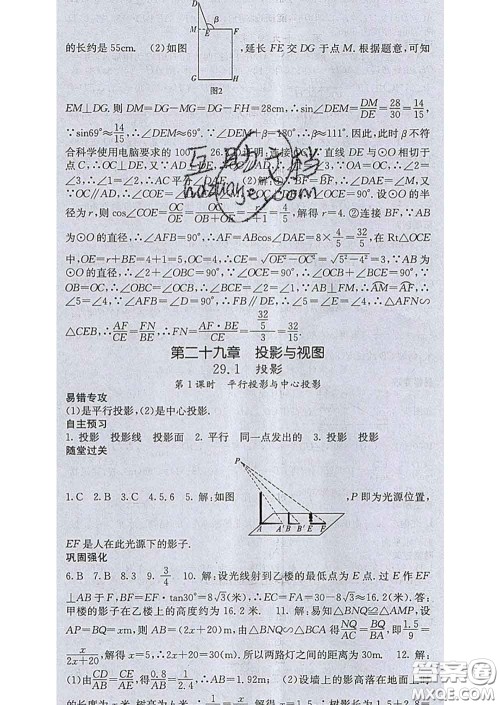 D
β
M E F
的长约是 55cm. (2)如图 ,延长 FE 交 DG 于点 M. 根据题意,可知
G H
图2
EM⊥DG. 则 DM=DG-MG=DG-FH=28cm,∴sin∠DEM=DM/DE=28/30=14/15,
∵sin69°≈14/15,∴∠DEM≈69°.∵∠DEM+β=180°,∴β≈111°. 因此,此时 β 不符
合科学使用电脑要求的 100°. 26.
点 C,∴OC⊥
∠2=∠3,∴∠1=∠2,∴AC 平分
的半
径为 r,则 cos∠COE=OC/OE=OC/(OB+OE)=4/5,解得 r=4. ②连接 BF,∵AB
为⊙O 的直径,∴∠AFB=90°,∴AF=ABcos∠DAE=8×4/5=32/5,在 Rt△OCE
中,OE=r+BE=4+1=5,OC=4,∴CE=√(OE²-OC²)=√(5²-4²)=3.∵AB 为⊙O
的直径,∴∠2+∠OBC=90°.∵∠OCE=90°,∴∠OCB+∠BCE=90°.∵
OB=OC,∴∠OBC=∠OCB,∴∠2=∠BCE.∵∠1=∠2,
∠5=∠4,∵∠AFB=∠D=90°,∴FB∥DE,∴∠5=∠E,∴∠4=∠E,∴△AFN∽
△CEB,∴AF/CE=FN/BE,∴FN=AF·BE/CE=(32/5)/3=32/15.
第二十九章 投影与视图
29.1 投影
第1课时 平行投影与中心投影
易错专攻
(1)是平行投影,(2)是中心投影.
自主预习
1. 投影 投影线 投影面 2. 平行 同一点发出的 3. 投影 投影
随堂过关
P
1. C 2. B 3. C 4. 5.6 5. 解:如图 ,P 即为光源位置,
A A′ B B′ E F
EF 是人在此光源下的影子.
巩固强化
6. B 7. B 8. 3 9. 3/4 10. 解:设光线射到乙楼的最低点为 E 点. 过 E 作 EF
⊥AB 于 F,则 BF=EF·tan30°=8√3(米),∴CE=FA=30-8√3≈16.2(米). 答:
甲楼的影子在乙楼上的高度约为 16.2 米. 11. 解:易知△BNQ≌△AMP,设
AP=BQ=x m,则 AB=(2x+20)m,由△BNQ∽△BCA 得 NQ/AC=BQ/AB,即 1.5/9=
x/(2x+20),解得 x=5,∴2x+20=30(m). 所以两路灯之间的距离为 30m. 12. 解:
(1)由 CD/AB=CE/BE,得 0.8/AB=1/2.4,∴AB=1.92m; (2)设墙上的影高落在地面上
答案圈
MXQE.COM